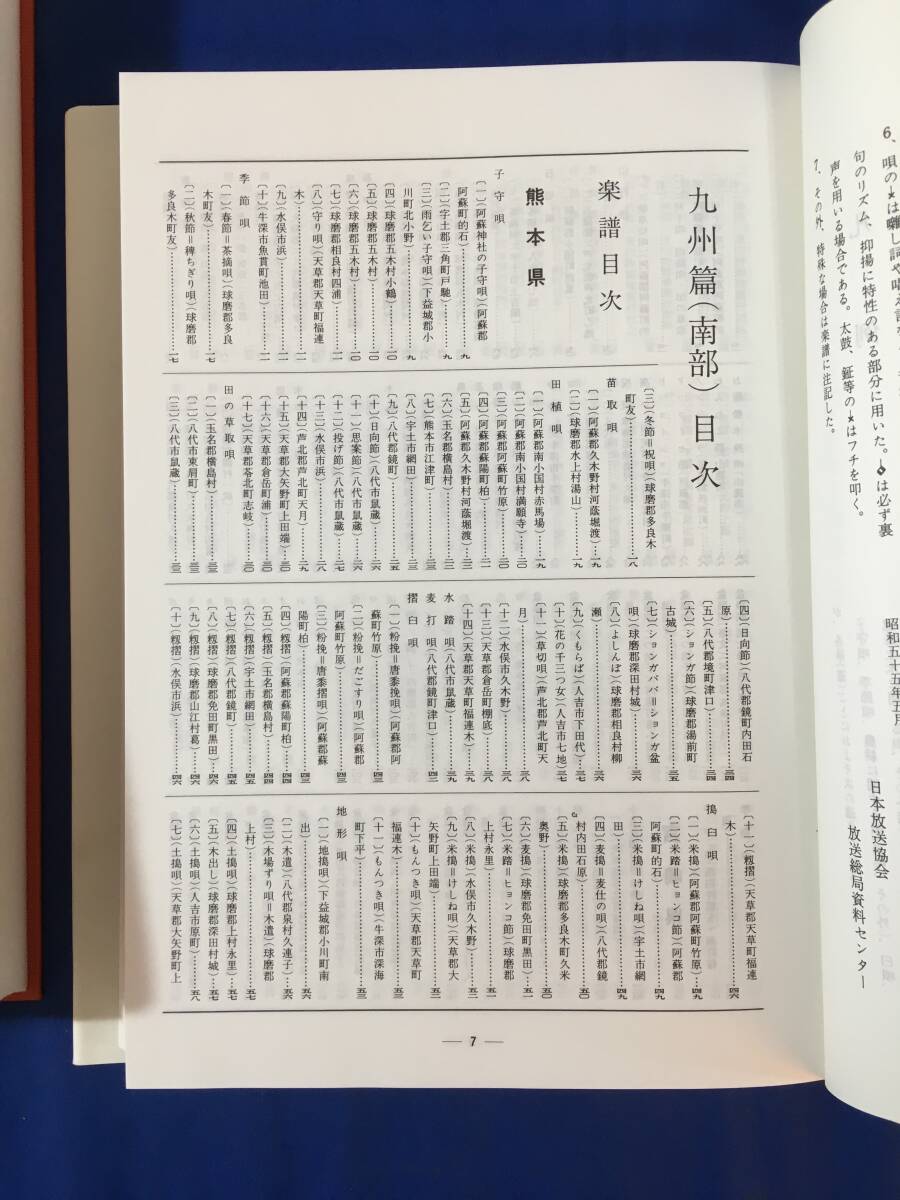 6、唄の★は囃し詞や唱え言
句のリズム、抑揚に特性のある部分に用いた。は必ず裏
声を用いる場合である。太鼓、鉦等の★はフチを叩く。
7、その外、特殊な場合は楽譜に注記した。
昭和五十五年五月
日本放送協会
放送総局資料センター
九州篇(南部)目次
楽譜目次
熊本県
子守唄
〔一〕(阿蘇神社の子守唄)(阿蘇郡
阿蘇町的石)…………九
〔二〕(宇土郡三角町戸馳)…………九
〔三〕(雨乞い子守唄)(下益城郡小
川町北小野)…………九
〔四〕(球磨郡五木村小鶴)…………一〇
〔五〕(球磨郡五木村)…………一〇
〔六〕(球磨郡五木村)…………一〇
〔七〕(球磨郡相良村四浦)…………一一
〔八〕(守り唄)(天草郡天草町福連
木)…………一一
〔九〕(水俣市浜)…………一一
〔十〕(牛深市魚貫町池田)…………一一
季節唄
〔一〕(春節=茶摘唄)(球磨郡多良
木町友)…………一七
〔二〕(秋節=稗ちぎり唄)(球磨郡
多良木町友)…………一七
〔三〕(冬節=祝唄)(球磨郡多良木
町友)…………一八
苗取唄
〔一〕(阿蘇郡久木野村河蔭堀渡)…一九
〔二〕(球磨郡水上村湯山)…………一九
田植唄
〔一〕(阿蘇郡南小国村赤馬場)……一九
〔二〕(阿蘇郡南小国村満願寺)……二〇
〔三〕(阿蘇郡阿蘇町竹原)…………二〇
〔四〕(阿蘇郡蘇陽町柏)…………二一
〔五〕(阿蘇郡久木野村河蔭堀渡)…二二
〔六〕(玉名郡横島村)…………二二
〔七〕(熊本市江津町)…………二三
〔八〕(宇土市網田)…………二三
〔九〕(八代郡鏡町)…………二五
〔十〕(日向節)(八代市鼠蔵)……二六
〔十一〕(思案節)(八代市鼠蔵)……二六
〔十二〕(投げ節)(八代市鼠蔵)……二七
〔十三〕(水俣市浜)…………二八
〔十四〕(芦北郡芦北町天月)…………二九
〔十五〕(天草郡大矢野町上田端)……三〇
〔十六〕(天草郡倉岳町浦)…………三〇
〔十七〕(天草郡苓北町志岐)…………三〇
田の草取唄
〔一〕(玉名郡横島村)…………三三
〔二〕(八代市東肩町)…………三三
〔三〕(八代市鼠蔵)…………三三
〔四〕(日向節)(八代郡鏡町内田石
原)…………三四
〔五〕(八代郡境町津口)…………三四
〔六〕(ションガ節)(球磨郡湯前町
古城)…………三五
〔七〕(ションガババ=ションガ盆
唄)(球磨郡深田村城)…………三六
〔八〕(よしんぼ)(球磨郡相良村柳
瀬)…………三六
〔九〕(くもらば)(人吉市下田代)…三七
〔十〕(花の千三つ女)(人吉市七地)三七
〔十一〕(草切唄)(芦北郡芦北町天
月)…………三八
〔十二〕(水俣市久木野)…………三八
〔十三〕(天草郡倉岳町棚底)…………三八
〔十四〕(天草郡天草町福連木)……三九
水踏唄(八代市鼠蔵)…………三九
麦打唄(八代郡鏡町津口)…………四二
摺臼唄
〔一〕(粉挽=唐黍挽唄)(阿蘇郡阿
蘇町竹原)…………四三
〔二〕(粉挽=だごすり唄)(阿蘇郡
阿蘇町竹原)…………四三
〔三〕(粉挽=唐黍摺唄)(阿蘇郡蘇
陽町柏)…………四三
〔四〕(籾摺)(阿蘇郡蘇陽町柏)……四四
〔五〕(籾摺)(玉名郡横島村)……四四
〔六〕(籾摺)(宇土市網田)…………四五
〔七〕(籾摺)(八代郡鏡町)…………四五
〔八〕(籾摺)(球磨郡免田町黒田)…四六
〔九〕(籾摺)(球磨郡山江村葛)……四六
〔十〕(籾摺)(水俣市浜)…………四六
〔十一〕(籾摺)(天草郡天草町福連
木)…………四六
搗臼唄
〔一〕(米搗)(阿蘇郡阿蘇町竹原)…四九
〔二〕(米踏=ヒョンコ節)(阿蘇郡
阿蘇町的石)…………四九
〔三〕(米搗=けしね唄)(宇土市網
田)…………四九
〔四〕(麦搗=麦仕の唄)(八代郡鏡
村内田石原)…………五〇
〔五〕(米搗)(球磨郡多良木町久米
奥野)…………五〇
〔六〕(麦搗)(球磨郡免田町黒田)…五一
〔七〕(米踏=ヒョンコ節)(球磨郡
上村永里)…………五一
〔八〕(米搗)(水俣市久木野)……五二
〔九〕(米搗=けしね唄)(天草郡大
矢野町上田端)…………五二
〔十〕(もんつき唄)(天草郡天草町
福連木)…………五三
〔十一〕(もんつき唄)(牛深市深海
町下平)…………五三
地形唄
〔一〕(地搗唄)(下益城郡小川町南
出)…………五六
〔二〕(木遣)(八代郡泉村久連子)…五六
〔三〕(木場ずり唄=木遣)(球磨郡
上村)…………五七
〔四〕(土搗唄)(球磨郡上村永里)…五七
〔五〕(木出し)(球磨郡深田村城)…五七
〔六〕(土搗唄)(人吉市原町)……五八
〔七〕(土搗唄)(天草郡大矢野町上
— 7 —